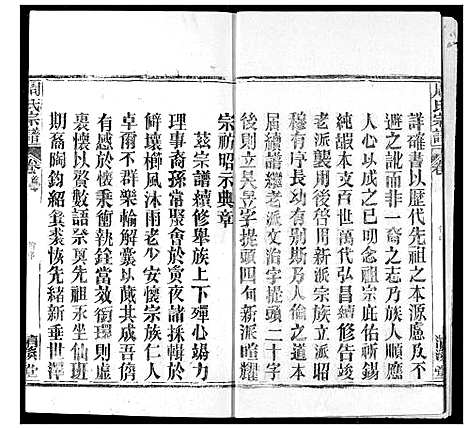 詳確書以歷代先祖之本源處及不
避之訛而非一裔之志乃族人順應
人心以成之一念祖宗庇佑祈錫
純嘏百世萬代弘昌續修啟言
老派襲用後當用新派宗族立派昭
穆有序長幼有別斯乃人倫之道本
屆續譜繼老派文治字提頭二十字
後則立昊字提頭四句新派暄耀
宗祊昭示典章
茲宗譜續修舉族上下殫心竭力
理事裔孫常聚會於寅夜諸採輯於
鮮壞櫛風沐雨老少安懷宗族仁人
卓爾不群樂輸解囊以蒇其成吾儕
有感於懷乘衛執銓當效銜環則虛
裏懷以贅數語祭奠先祖永坐仙班
期裔陶鈞紹箕裘恢先緒新垂世澤
周氏宗譜
卷首
周氏宗譜
卷首
清溪堂